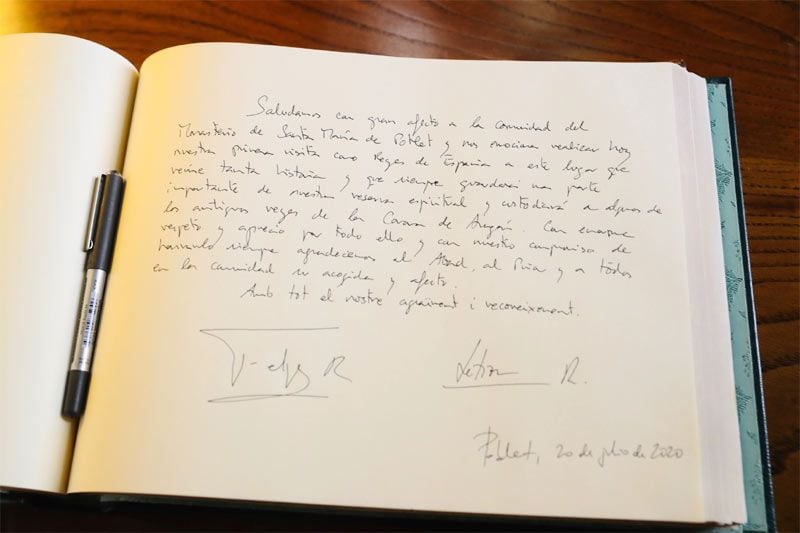 Saludamos con gran afecto a la comunidad del
Monasterio de Santa María de Poblet y nos emociona realizar hoy
nuestra primera visita como Reyes de España a este lugar que
reúne tanta historia y que siempre guardará una parte
importante de nuestra reserva espiritual y custodiará a algunos de
los antiguos reyes de la Corona de Aragón. Con enorme
respeto y aprecio por todo ello y con nuestro compromiso de
hacerlo siempre agradecemos al Abad, al Prior y a todos
en la comunidad su acogida y afecto.
Amb tot el nostre agraïment i reconeixement.
Felipe R Letizia R.
Poblet, 20 de julio de 2020